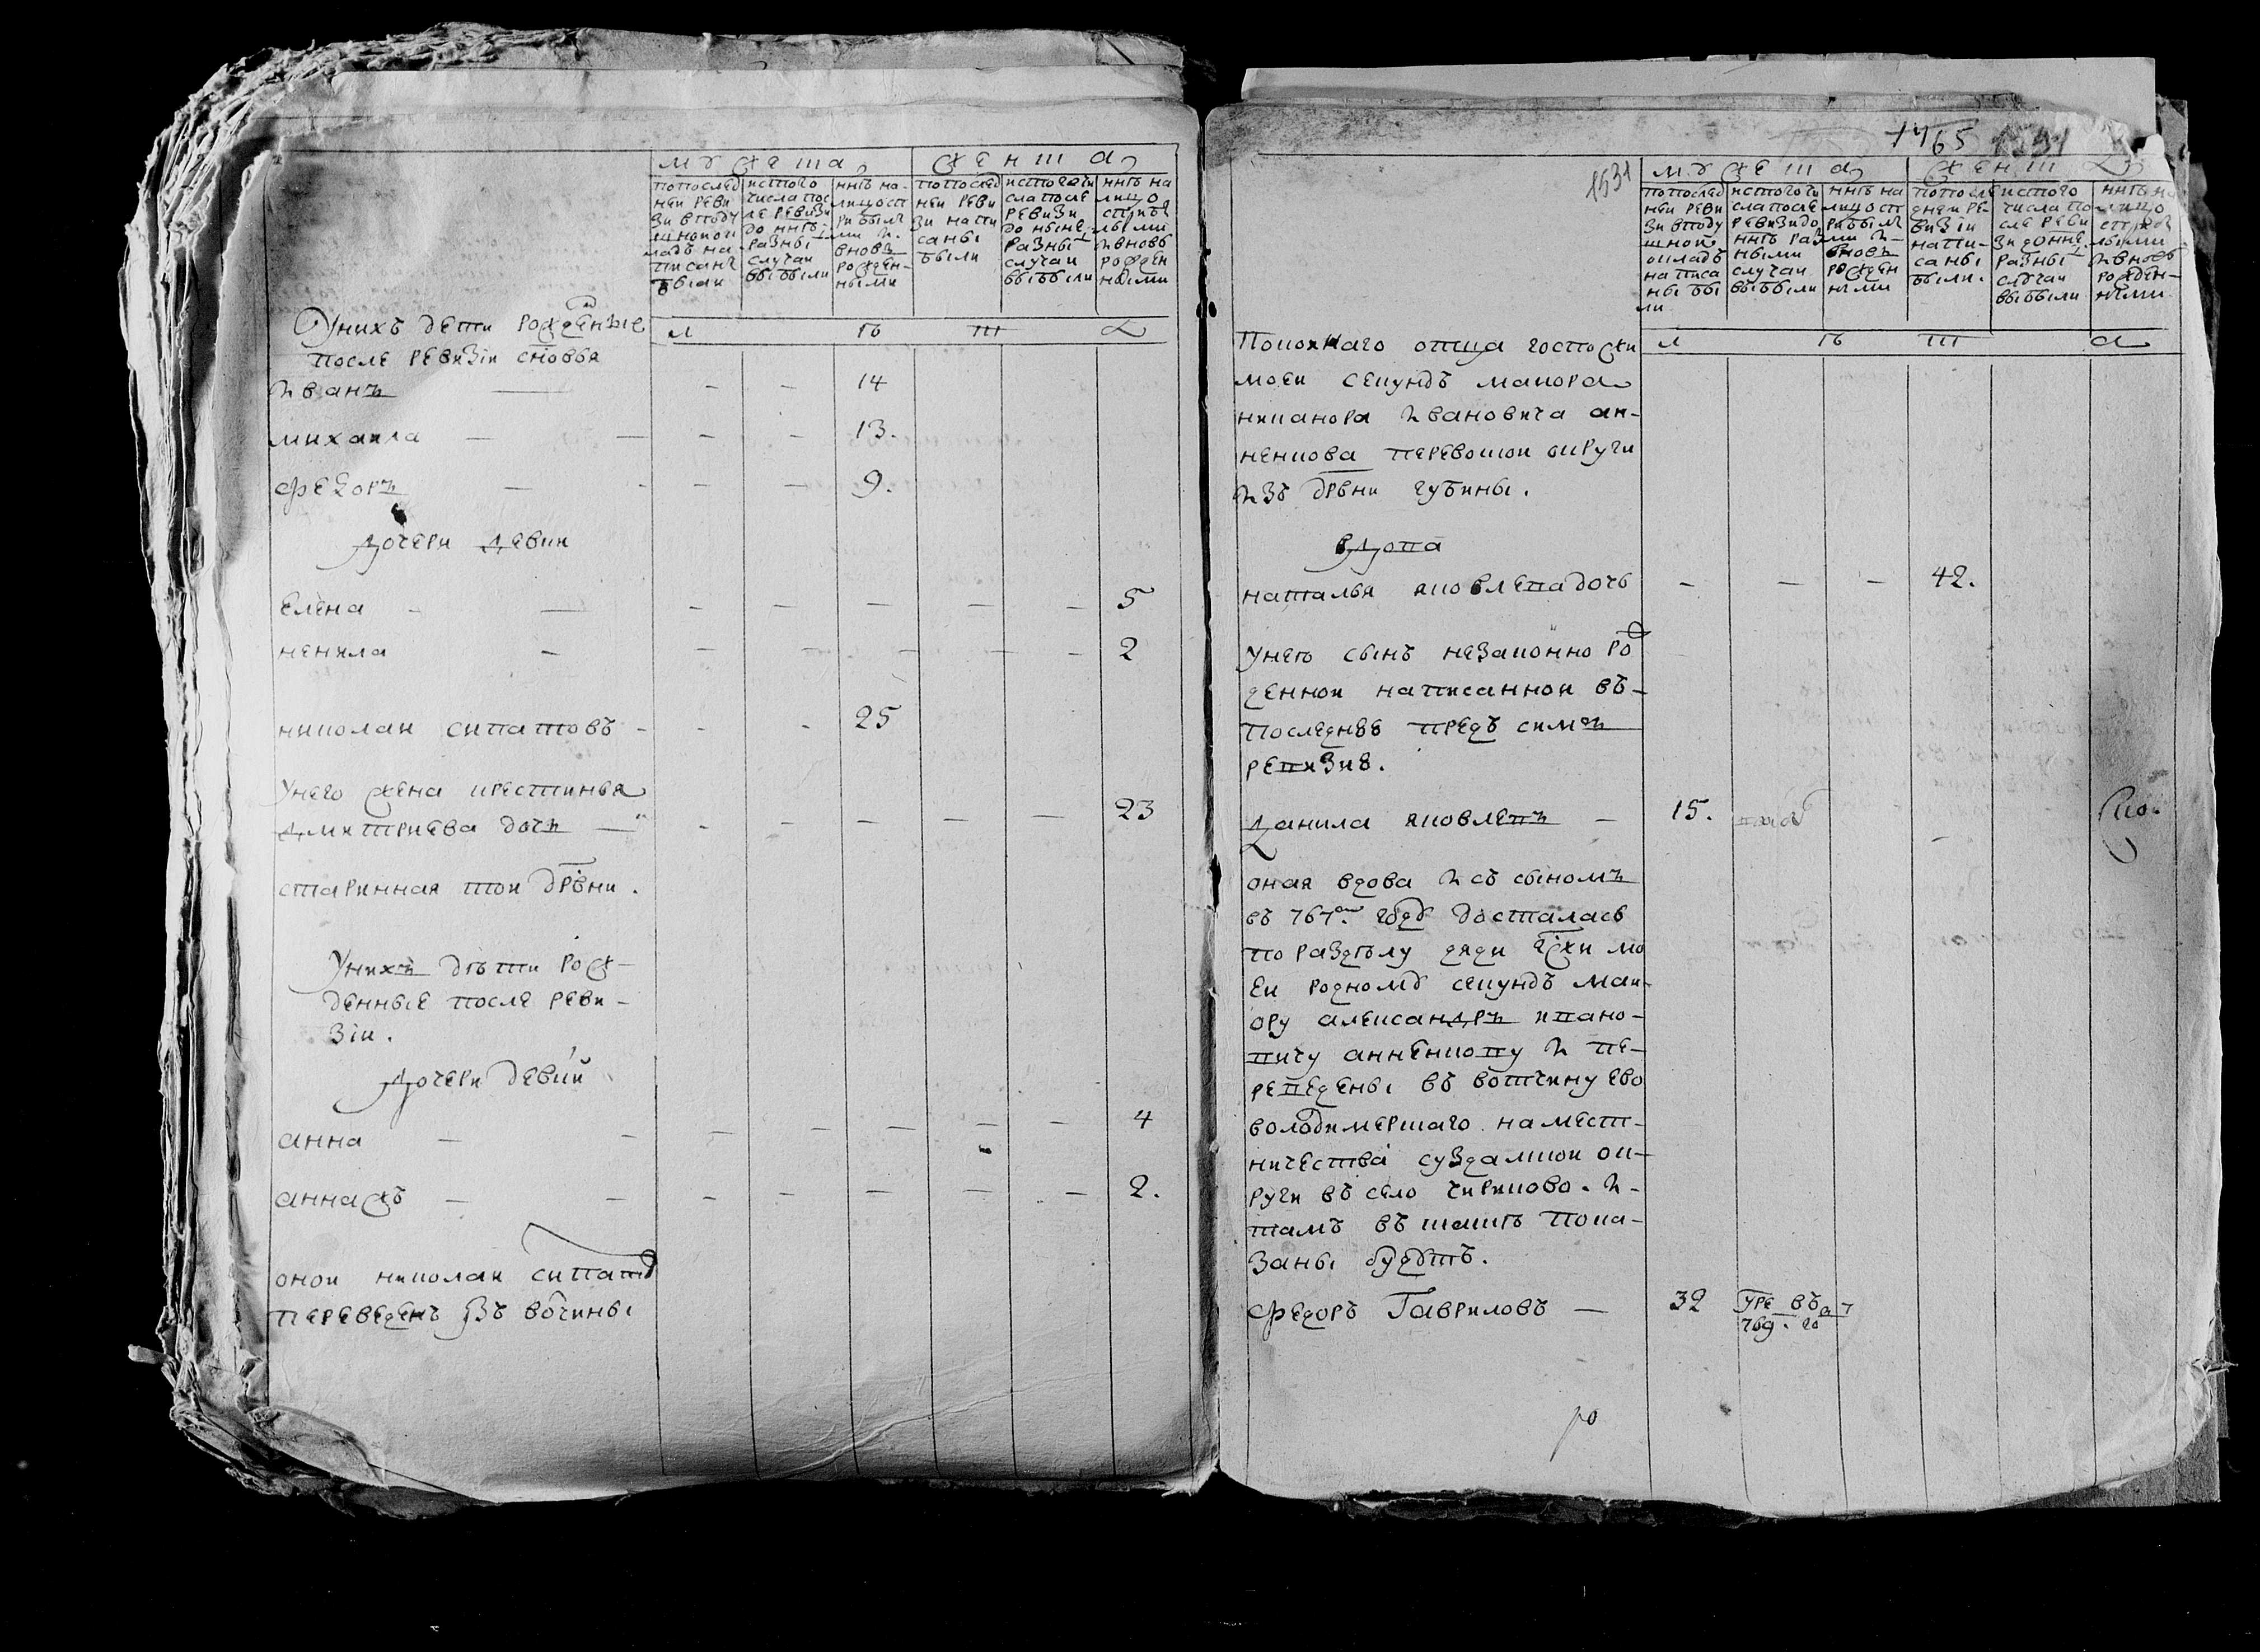 мужеска
женска
попослед ней реви зи вподу шной ок ладъ на писанъ были
истого числа пос ле ревизи до ннѣ разны случаи выбыли
ннѣ на лицо ст рибылъ ми и вновь рожден ными
попослед ней реви зи напи саны были
истого чи сла после ревизи до ныне разны случаи выбыли
ннѣ на лицо стрибы лыми ивновь рожден ными
л ѣ т а
Унихъ дети рожденые
после ревизiи сновья
Иванъ — 14
михаила — 13.
Федоръ — 9.
Дочери девки
Елена — 5
ненила — 2
николаи ипатовъ — 25
Унего жена крестинья
дмитриева дочь — 23
старинная тои дрѣвни.
Унихъ дѣти рож-
денные после реви-
зiи.
Дочери девки
анна — 4
аннажъ — 2.
онои николаи ипат
переведенъ въ вочины
1765
1531
мужеска
женска
попослед ней реви зи вподу шной окладъ написа ны бы ли
истого чи сла после ревизи до ннѣ раз ными случаи выбыли
ннѣ на лицо ст рибылъ ми и вновь рожден ными
попосле дней ре визiи напи саны были.
истого числа по сле реви зи донне разны случаи выбыли
ннѣ на лицо стрибы лыми ивновь рожден ными
л ѣ т а
Покоинаго отца госпожи
моеи секундъ маиора
никанора Ивановича ан-
ненкова перевошои округи
Изъ дрвни губины.
вдова
наталья яковлева дочь — 42.
Унею сынъ незаконно ро
жденнои написаннои въ
последнѣе предъ симъ
ревизие.
данила яковлевъ — 15.
оная вдова И съ сыномъ
въ 767м году досталась
по раздѣлу дяди гсжи мо
еи родному секундъ маи-
ору александръ ивано-
вичу анненкову И пе-
реведены въ вотчину ево
володимершаго намест-
ничества суздалшои ок-
руги въ село чирково. И-
тамъ въ шашѣ пока-
заны будутъ.
Федоръ Гавриловъ — 32 Уме въ 769. го